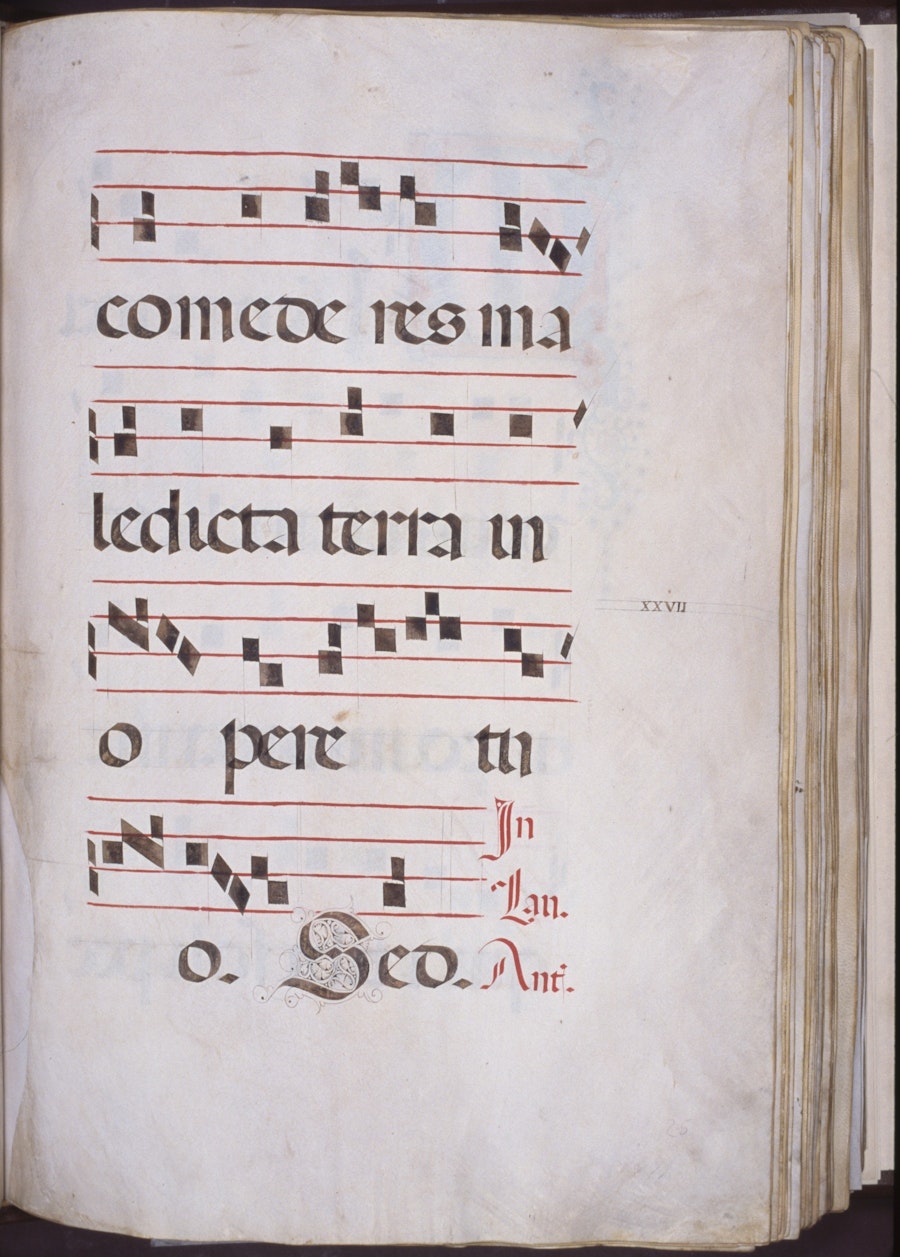 comede res ma
ledicta terra in
o pere tu
XXVII
In
o. Sed. Lau.
Ant.